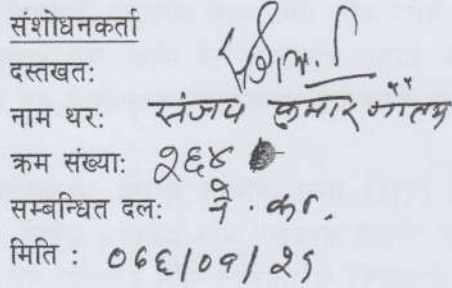 संशोधनकर्ता
दस्तखत:
नाम थर: संजय कुमार गौतम
क्रम संख्या: २६४
सम्बन्धित दल: ने. का.
मिति : ०६६/०१/२९